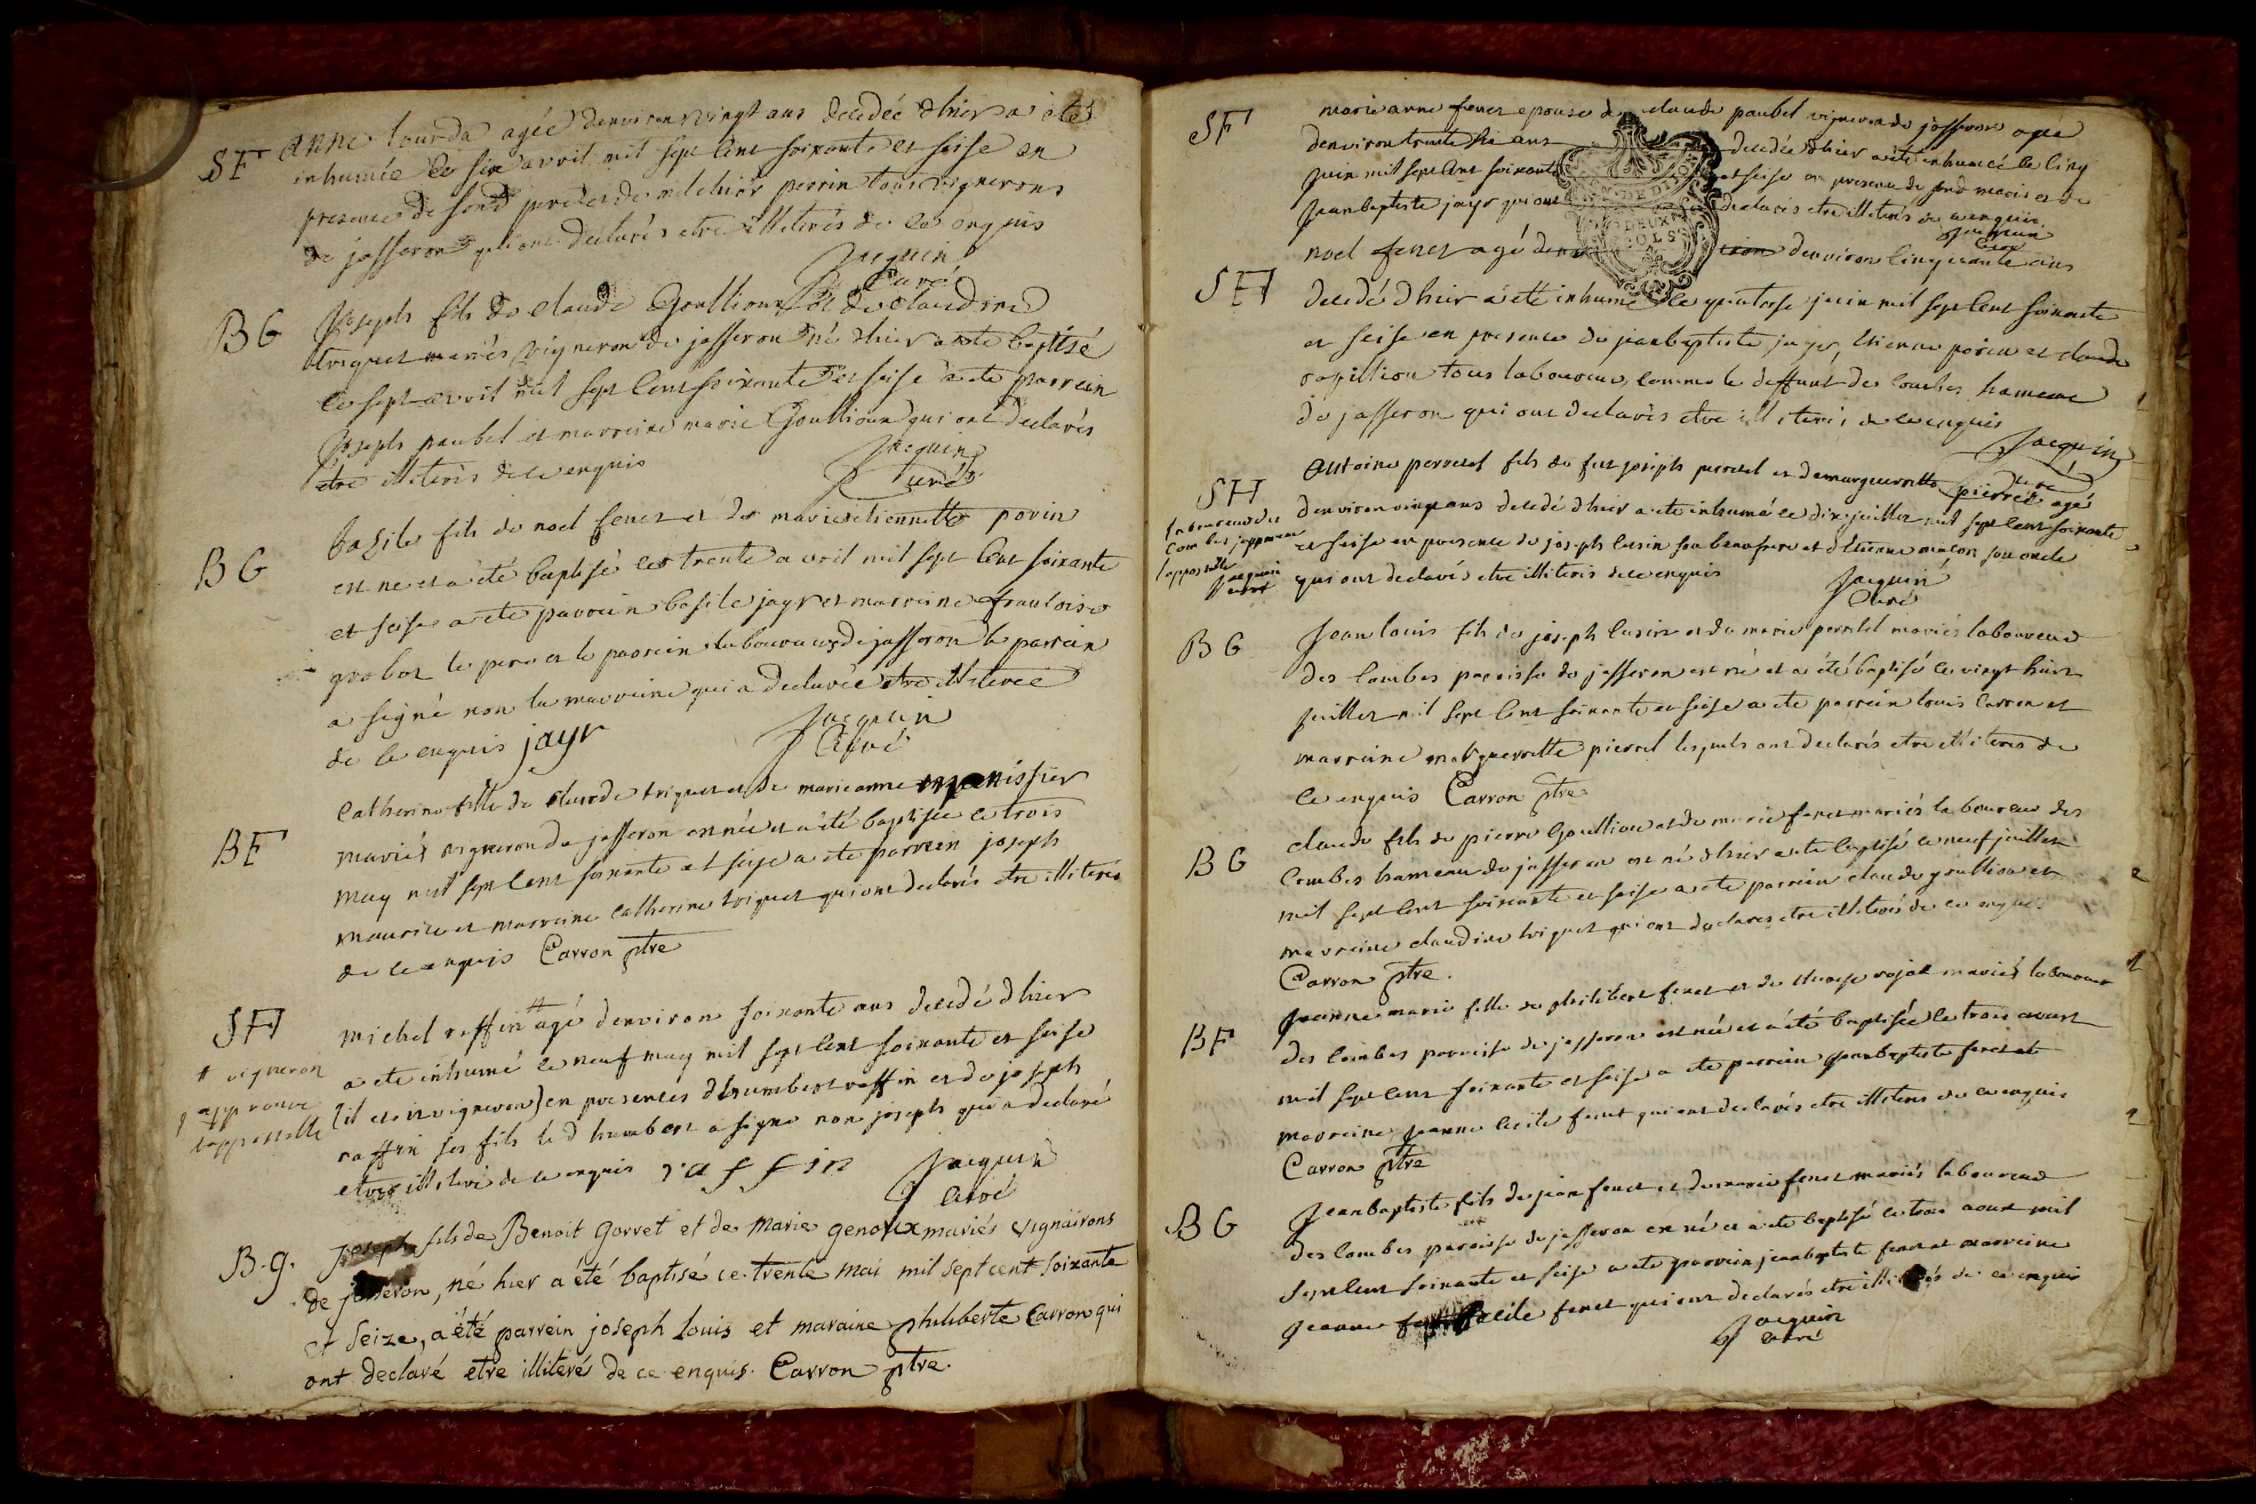 SF
anne tourda agée denviron vingt ans decedée dhier a été
inhumée le six avril mil sept cent soixante et seise en
presence de son pere et de melchior perrin tous vignerons
de jasseron qui ont declarés etre illiterés de ce enquis
Jacquin
Curé
BG
Joseph fils de claude Goullioux et de claudine
triquet mariés vigneron de jasseron né dhier a ete baptisé
le sept avril mil sept cent soixante et seise a ete parrein
Joseph paubel et marreine marie Goullioux qui ont declarés
etre illiterés de ce enquis
Jacquin
Curé
BG
basile fils de noel feret et de marie etiennette porin
est ne et a été baptisé le trente avril mil sept cent soixante
et seise a ete parrein basile jayr et marreine francoise
grobot le pere et le parrein laboureurs de jasseron le parrein
a signé non la marreine qui a declarée etre illiterée
de ce enquis jayr
Jacquin
Curé
BF
Catherine fille de claude triquet et de marie anne manissier
mariés vigneron de jasseron est née et a été baptisée le trois
may mil sept cent soixante et seise a ete parrein joseph
maurice et marreine catherine triquet qui ont declarés etre illiterés
de ce enquis Carron ptre
SH
# vigneron
j approuve
lappostille
michel raffin # agé denviron soixante ans decedé dhier
a ete inhumé le neuf may mil sept cent soixante et seise
(il etoit vigneron) en presences dhumbert raffin et de joseph
raffin ses fils le d humbert a signe non joseph qui a declaré
etre illiteré de ce enquis raffin
Jacquin
Curé
B.g.
joseph fils de Benoit Gorret et de Marie genoux mariés vignairons
de jasseron, né hier a été baptisé ce trente mai mil sept cent soixante
et Seize, a été parrein joseph Louis et maraine philiberte Carron qui
ont declaré etre illiteré de ce enquis. Carron ptre.
SF
marie anne feret epouse de claude paubel vigneron de jasseron agée
denviron trente six ans decedée dhier a été inhumée le cinq
juin mil sept cent soixante et seise en presence de son d maris et de
jean baptiste jayr qui ont declarés etre illiterés de ce enquis
Jacquin
Curé
DEUX
SOLS
SH
noel feret agé denviron cinquante ans
decedé dhier a été inhumé le quatorse juin mil sept cent soixante
et seise en presence de jean baptiste jayr, etienne porin et claude
tous laboureurs comme le deffunt des combes hameau
de jasseron qui ont declarés etre illiterés de ce enquis
Jacquin
Curé
SH
laboureur des
Combes japprouve
lappostille
Jacquin
Curé
antoine perretet fils de feu joseph perretet et de marguerritte pierrel agé
denviron vingt ans decedé dhier a ete inhumé le dix juillet mil sept cent soixante
et seise en presence de joseph cusin son beaufrere et detienne macon son oncle
qui ont declarés etre illiterés de ce enquis
Jacquin
Curé
BG
Jean louis fils de joseph cusin et de marie perretel mariés laboureur
des combes paroisse de jasseron est né et a été baptisé le vingt huit
juillet mil sept cent soixante et seise a ete parrein louis carron et
marreine marguerritte pierrel lesquels ont declarés etre illiteres de
ce enquis Carron ptre
BG
claude fils de pierre Goullioux et de marie feret mariés laboureur des
Combes hameau de jasseron est né dhier a ete baptisé le neuf juillet
mil sept cent soixante et seise a ete parrein claude goullioux et
marreine claudine triquet qui ont declarés etre illiterés de ce enquis
Carron ptre.
BF
Jeanne marie fille de philibert feret et de mariés laboureur
des combes paroisse de jasseron est née et a été baptisée le trois aoust
mil sept cent soixante et seise a ete parrein jeanbaptiste feret et
marreine jeanne cecile feret qui ont declarés etre illiteres de ce enquis
Carron ptre
BG
Jeanbaptiste fils de jean feret et de marie feret mariés laboureur
des combes paroisse de jasseron est né et a ete baptisé le trois aoust mil
sept cent soixante et seise a ete parrein jeanbaptiste feret et marreine
jeanne cecile feret qui ont declarés etre illiterés de ce enquis
Jacquin
Curé